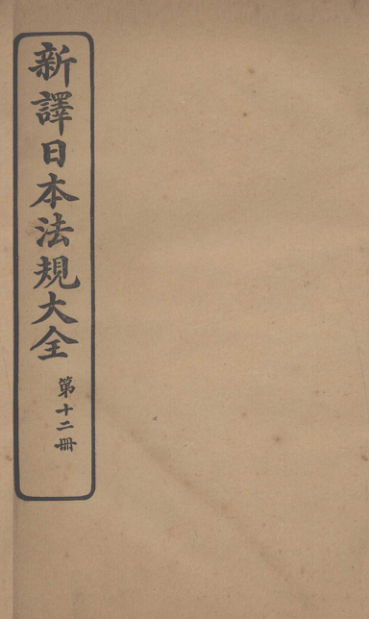 新譯日本法規大全
第十二冊